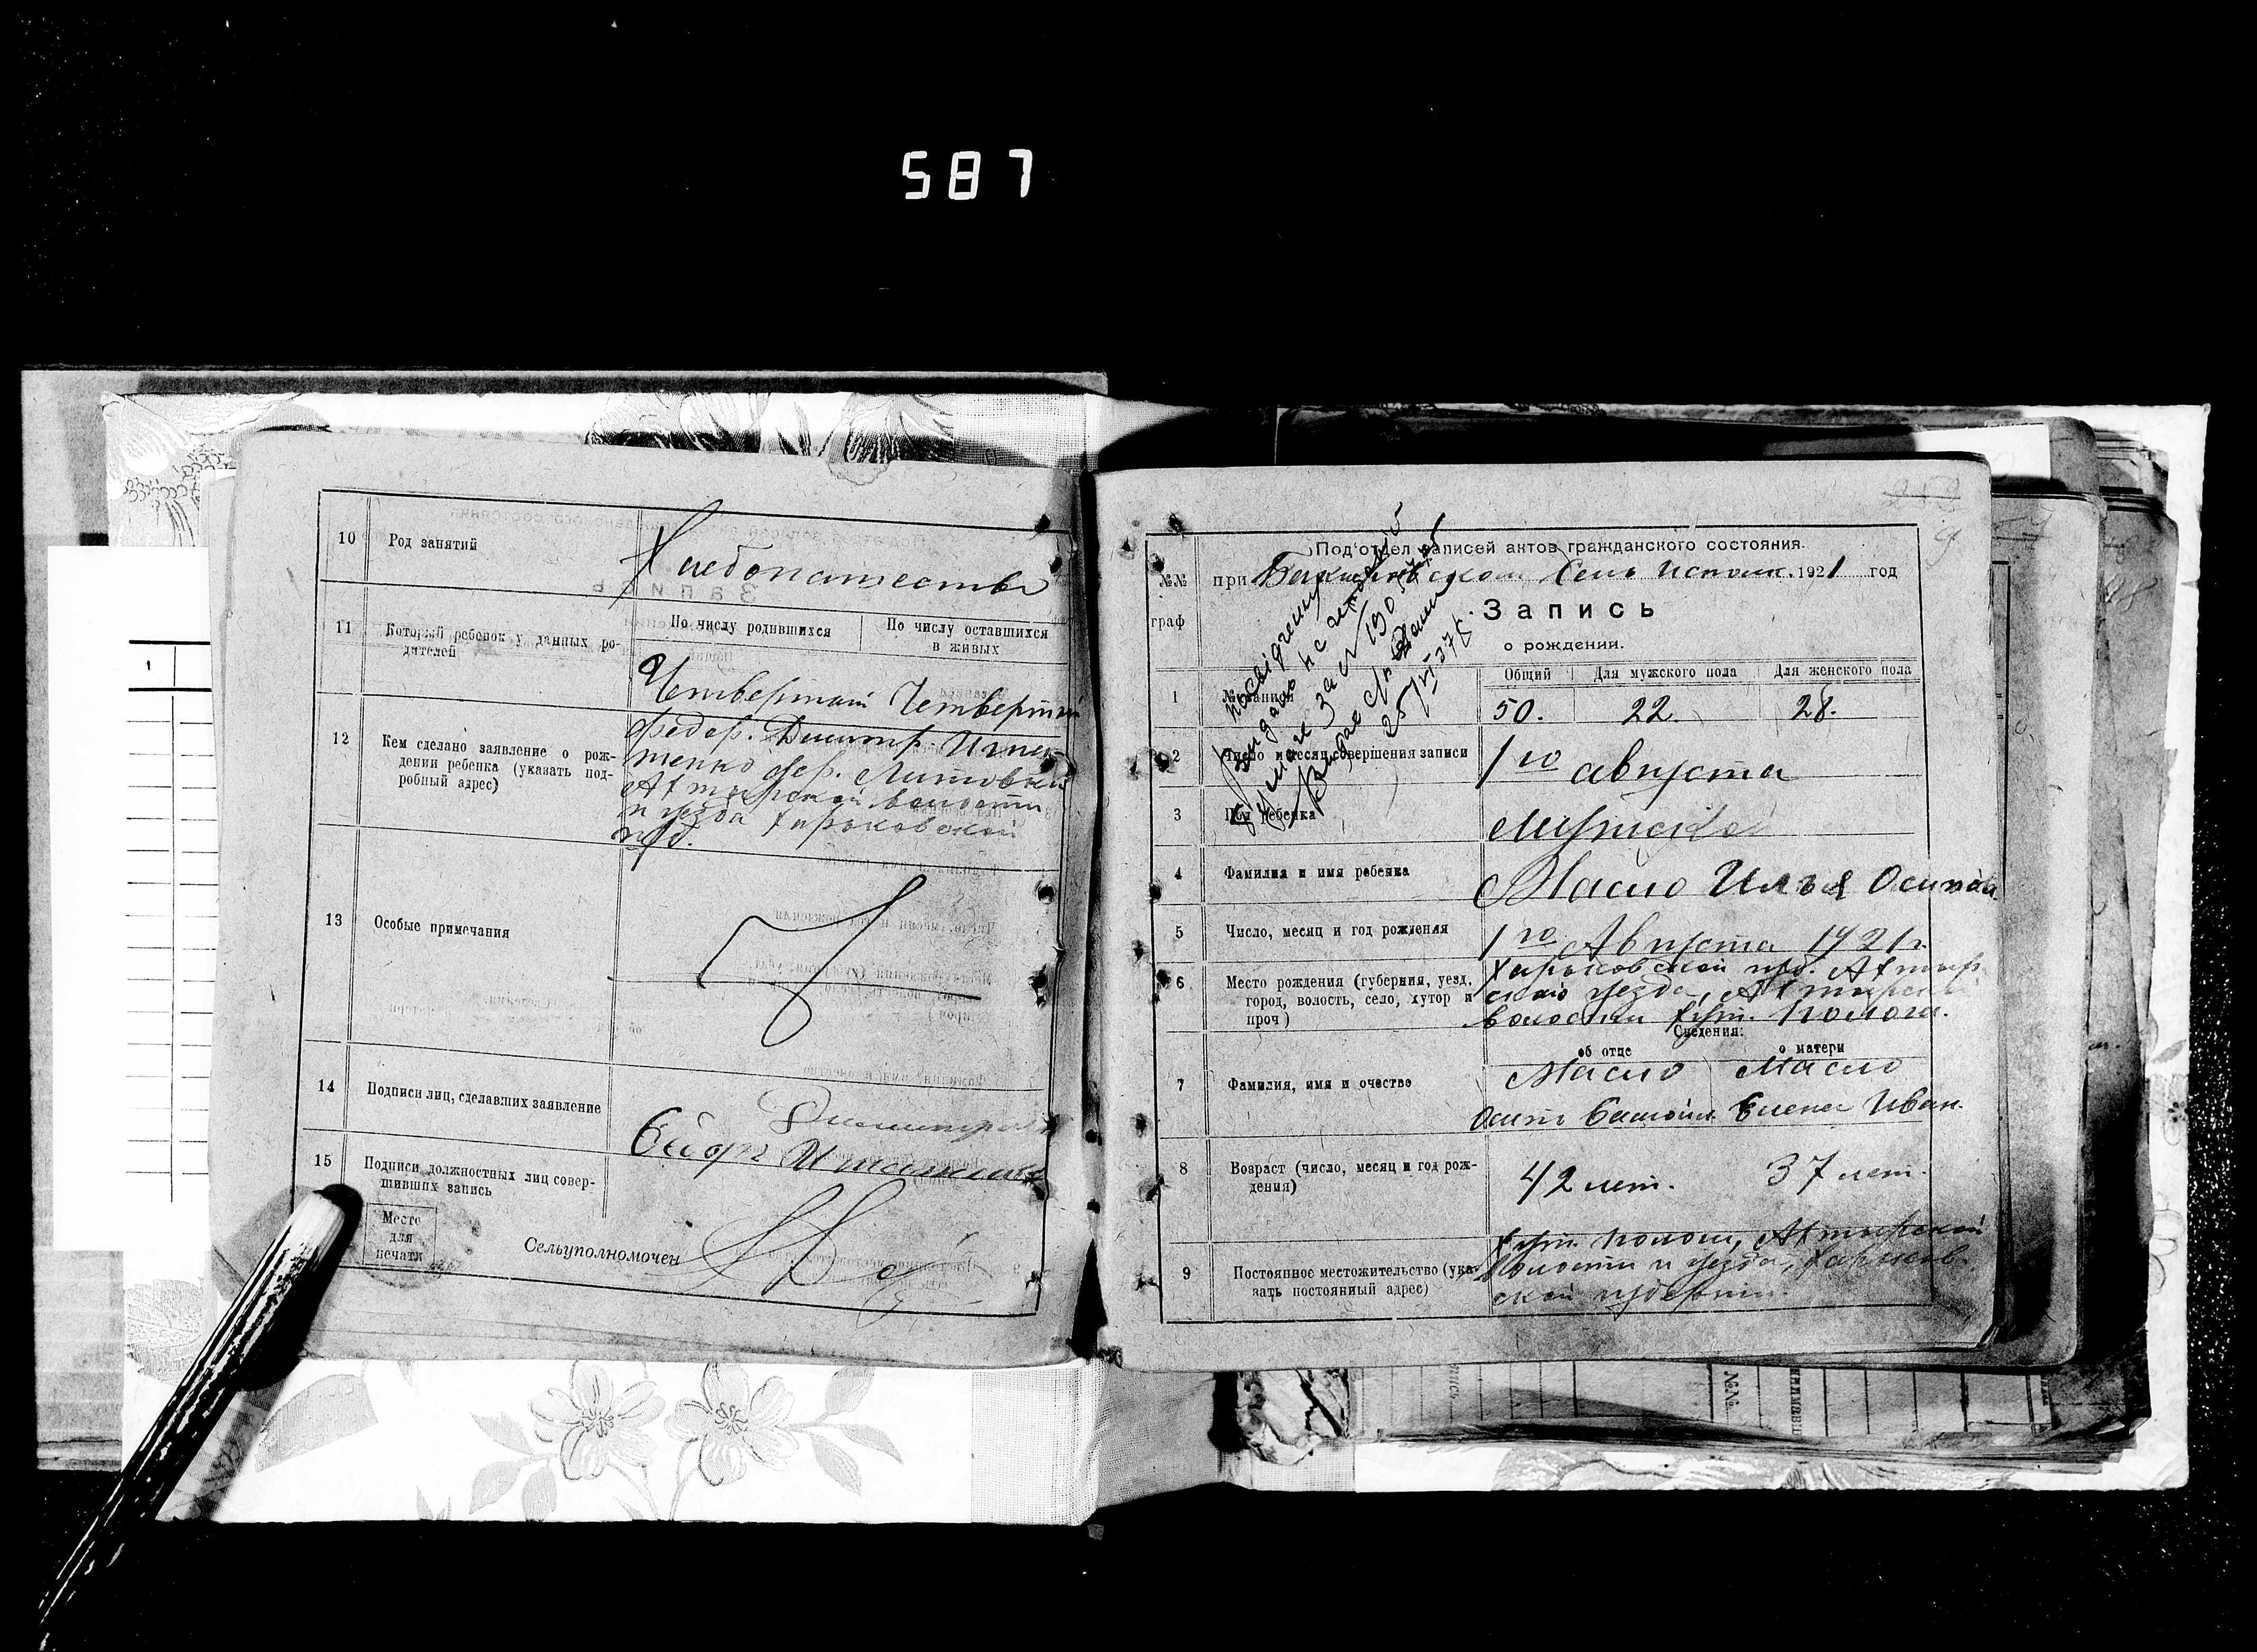 587
10 Род занятий
Хлебопашество
11 Который ребенок у данных ро-
дителей
По числу родившихся
По числу оставшихся
в живых
Четвертый Четвертый
12 Кем сделано заявление о рож-
дении ребенка (указать под-
робный адрес)
Федор. Димитр. Игна-
тенко дер. Литовка
Ахтырской волости
и уезда Харьковской
губ.
13 Особые примечания
14 Подписи лиц, сделавших заявление
15 Подписи должностных лиц совер-
шивших запись
Место
для
печати
Сельуполномочен
Подотдел записей актов гражданского состояния.
№№
граф
при Сель Исполк. 1921 год
Запись
о рождении.
1 № записи
Общий Для мужского пола Для женского пола
50. 22. 28.
2 Число и месяц совершения записи
1го августа
3 Пол ребенка
Мужской
4 Фамилия и имя ребенка
Масло Илья Осипов.
5 Число, месяц и год рождения
1го Августа 1921 г.
6 Место рождения (губерния, уезд,
город, волость, село, хутор и
проч)
Харьковской губ. Ахтыр
ского уезда, Ахтырской
волости хут.
Сведения:
об отце о матери
7 Фамилия, имя и очество
Масло Масло
Осип Елена Иван.
8 Возраст (число, месяц и год рож-
дения)
42 лет. 37 лет.
9 Постоянное местожительство (ука-
зать постоянный адрес)
Хут. Ахтырской
Волости и уезда, Харьков-
ской губернии.